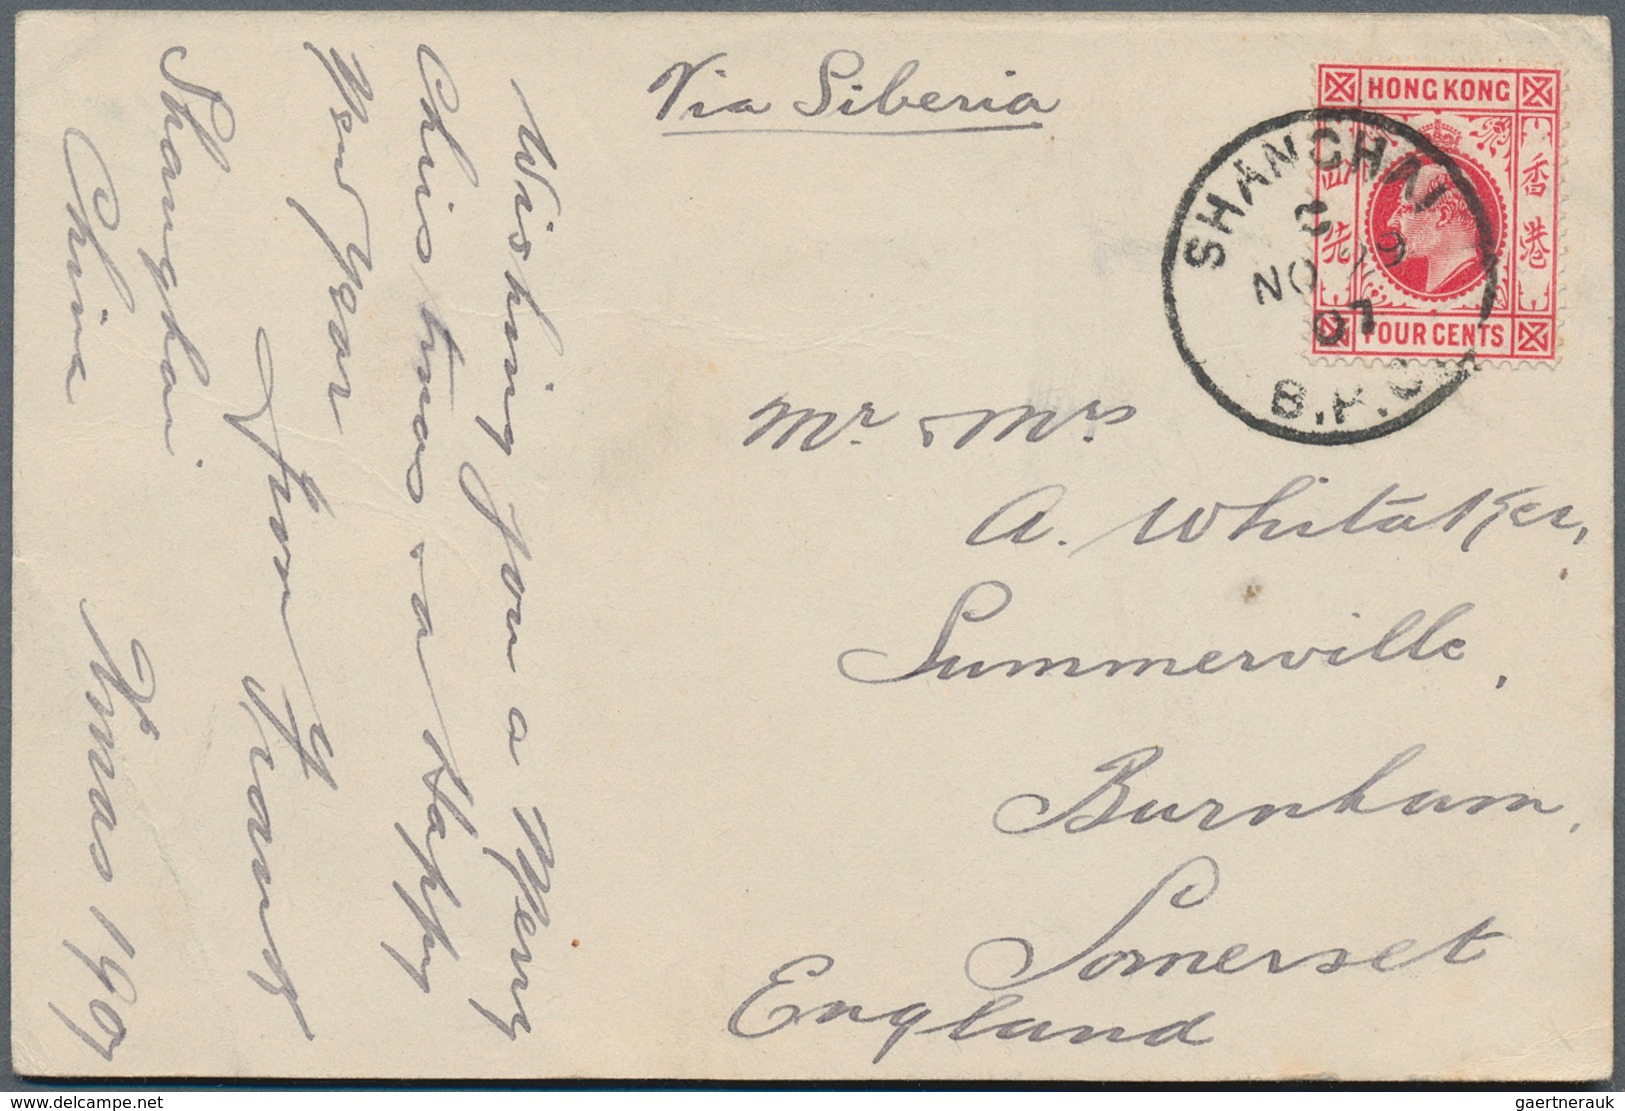 Via Siberia
HONG KONG
香港
四先
FOUR CENTS
SHANGHAI
NO 29
07
B.P.O.
Mr & Mrs
A. Whitaker,
Summerville,
Burnham,
Somerset
England
Wishing you a Merry
Christmas & a Happy
New Year
from
Shanghai
China
Xmas 1907
gaertnerauk @ delcampe.net